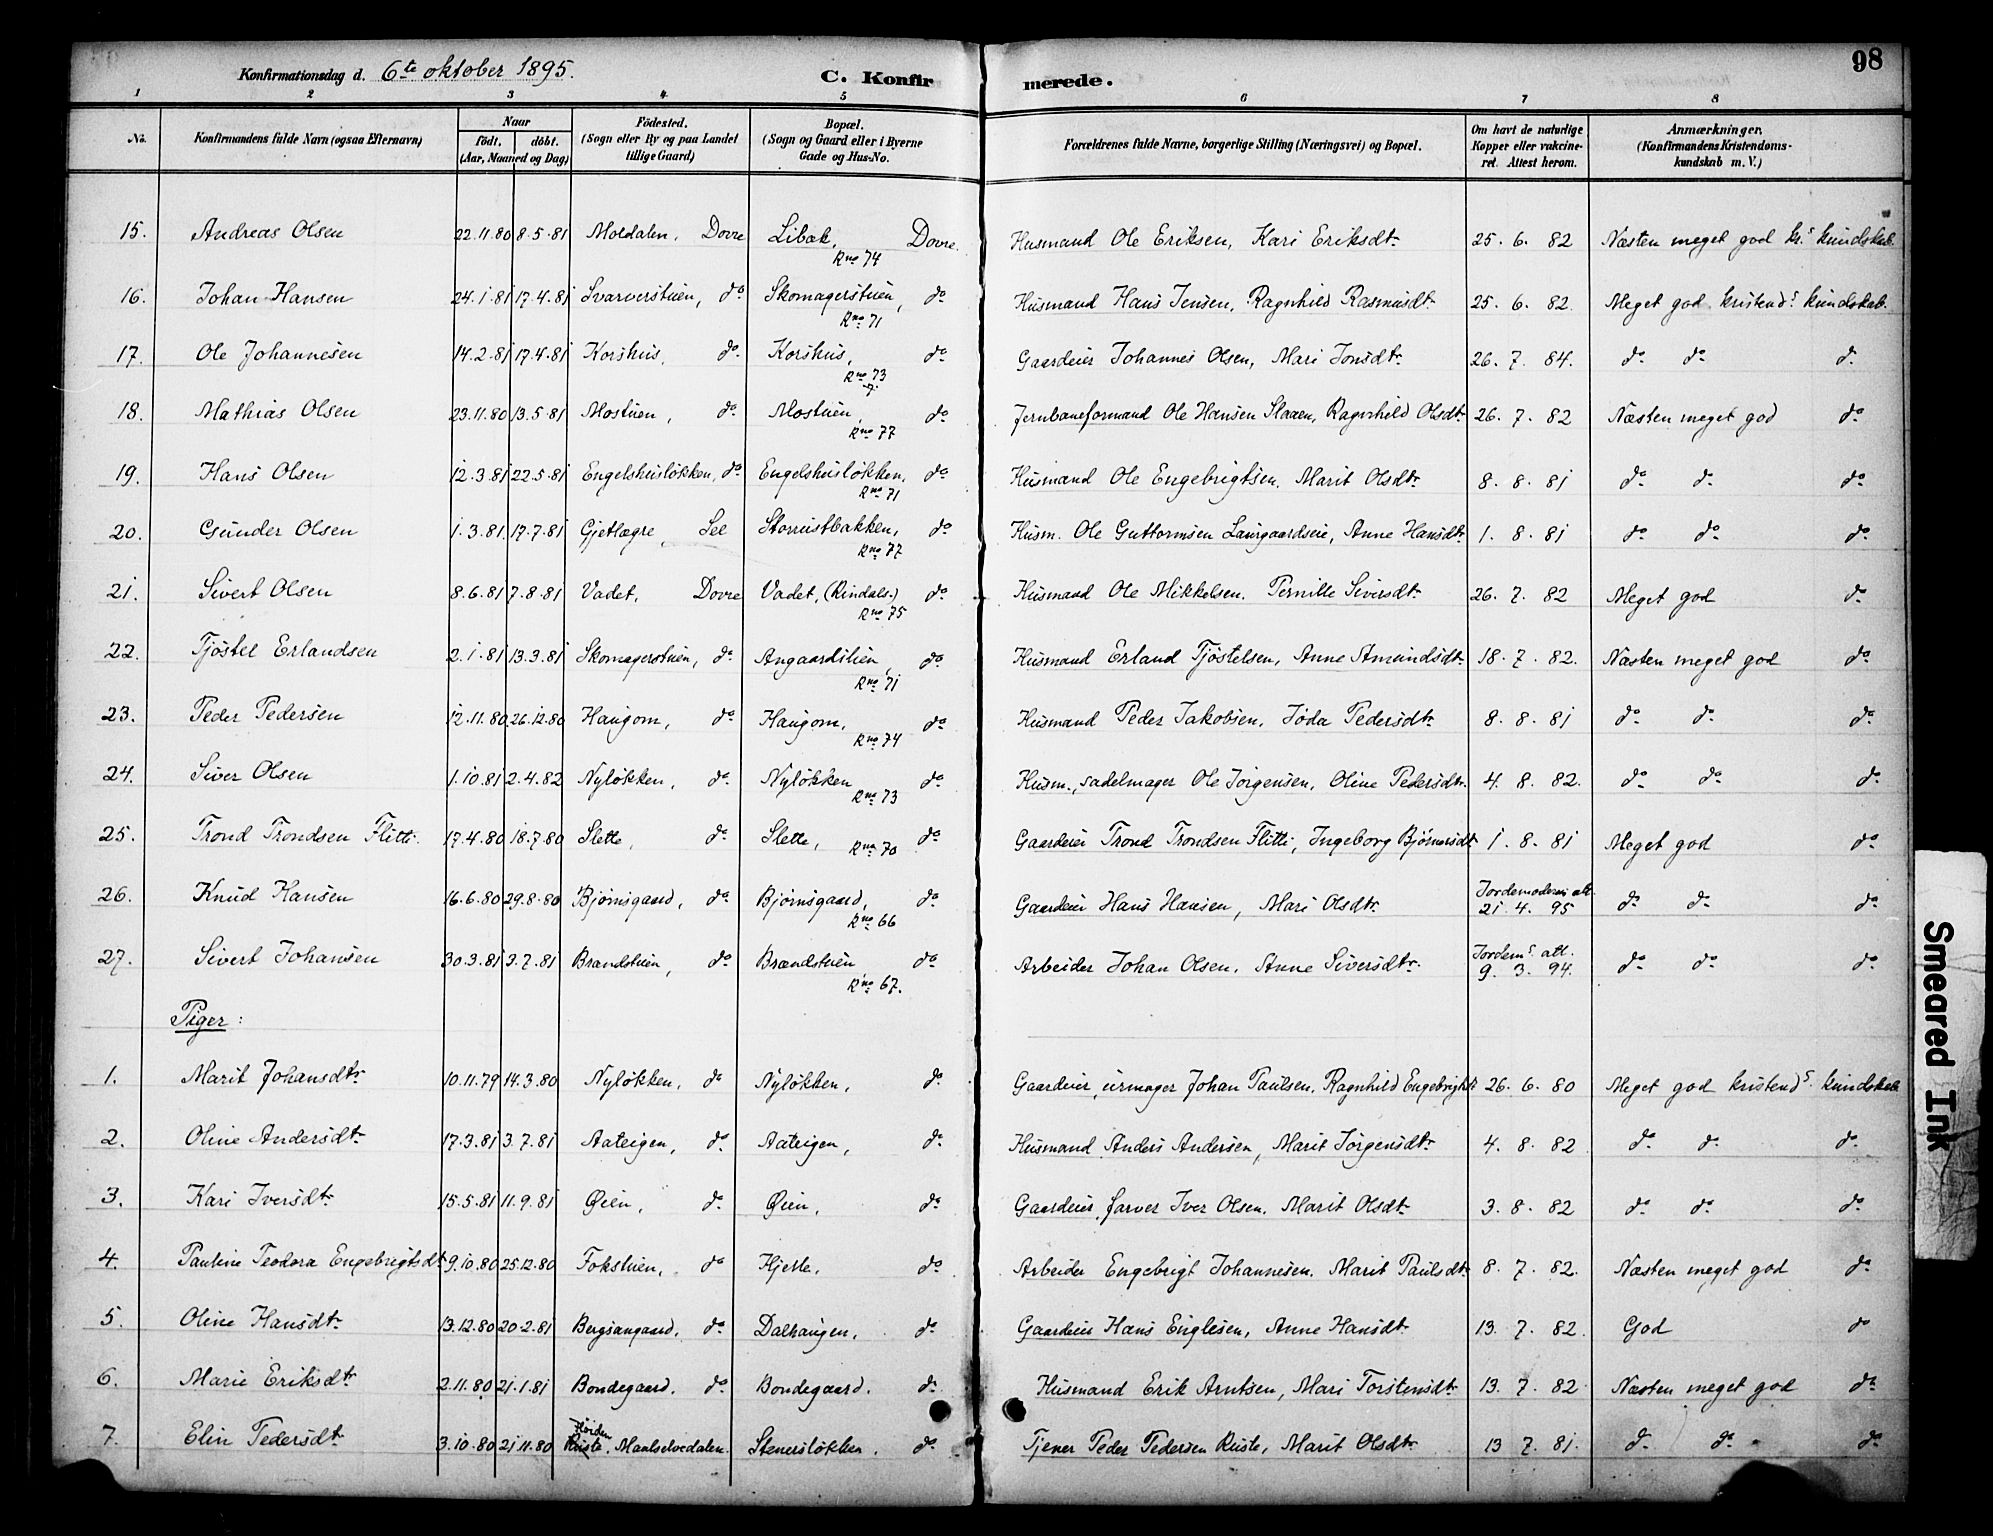 98
Konfirmationsdag d. 6te oktober 1895. C. Konfir merede.
1 2 3 4 5 6 7 8
No. Konfirmandens fulde Navn (ogsaa Efternavn) Naar født. døbt. (Aar, Maaned og Dag) Födested. (Sogn eller By og paa Landet tillige Gaard) Bopæl. (Sogn og Gaard eller i Byerne Gade og Hus-No. Forældrenes fulde Navne, borgerlige Stilling (Næringsvei) og Bopæl. Om havt de naturlige Kopper eller vakcineret. Attest herom. Anmærkninger, (Konfirmandens Kristendomskundskab m. V.)
15. Andreas Olsen 22.11.80 8.5.81 Moldalen, Dovre Libak, Dovre. Rno 74 Husmand Ole Eriksen, Kari Eriksdtr 25. 6. 82 Næsten meget god kr.s kundskab.
16. Johan Hansen 24.1.81 17.4.81 Svarverstuen, do Skomagerstuen, do Rno 71 Husmand Hans Jensen, Ragnhild Rasmusdtr 25. 6. 82. Meget god kristends kundskab.
17. Ole Johannesen 14.2.81 17.4.81 Korshus, do. Korshus, do Rno 73 Gaardeier Johannes Olsen, Mari Jonsdtr 26. 7. 84. do do d.
18. Mathias Olsen 23.11.80 13.5.81 Mostuen, do Mostuen, do Rno 77 Jernbaneformand Ole Hansen Slaaen, Ragnhild Olsdtr 26. 7. 82 Næsten meget god do
19. Hans Olsen 12.3.81 22.5.81 Engelshusløkken, do Engelshusløkken, do Rno 71 Husmand Ole Engebrigtsen, Marit Olsdtr 8. 8. 81 do do do
20. Gunder Olsen 1.3.81. 17.7.81 Gjetlægre, Sel Storrustbakken, do Rno 77 Husm. Ole Guttormsen Laurgaardseie, Anne Hansdtr 1. 8. 81 do do do
21. Sivert Olsen 8.6.81 7.8.81 Vadet, Dovre Vadet, (Rindals.) do Rno 75 Husmand Ole Mikkelsen, Pernille Siversdtr 26. 7. 82 Meget god do
22. Tjøstel Erlandsen 2.1.81 13.3.81 Skomagerstuen, do Angaardslien, do Rno 71 Husmand Erland Tjøstelsen, Anne Amundsdtr 18. 7. 82. Næsten meget god do
23. Peder Pedersen 12.11.80 26.12.80 Haugom, do Haugom, do Rno 74 Husmand Peder Jakobsen, Jøda Pedersdtr 8. 8. 81 do do do
24. Siver Olsen 1.10.81 2.4.82 Nyløkken, do Nyløkken do Rno 73 Husm., sadelmager Ole Jørgensen, Oline Pedersdtr. 4. 8. 82. do do do
25. Trond Trondsen Flitti. 17.4.80 18.7.80 Slette, do Slette, do Rno 70 Gaardeier Trond Trondsen Flitti, Ingeborg Bjørnersdtr 1. 8. 81 Meget god do
26. Knud Hansen 16.6.80 29.8.80 Bjørnsgaard, do Bjørnsgaard, do Rno 66 Gaardeier Hans Hansen, Mari Olsdtr Jordemoderens att. 21. 4. 95 do do do
27. Sivert Johansen 30.3.81 3.7.81 Brændstuen, do Brændstuen do Rno 67. Arbeider Johan Olsen, Anne Siversdtr. Jordems att. 9. 3. 94. do do do
Piger:
1. Marit Johansdtr 10.11.79 14.3.80 Nyløkken, do Nyløkken, do Gaardeier, urmager Johan Paulsen, Ragnhild Engebrigtsd. 26. 6. 80 Meget god kristends. kundskab
2. Oline Andersdtr 17.3.81 3.7.81 Aateigen, do Aateigen, do Husmand Anders Andersen, Marit Jørgensdtr 4. 8. 82 do do do
3. Kari Iversdtr 15.5.81 11.9.81 Øien, do Øien, do Gaardeier, farver Iver Olsen, Marit Olsdtr 3. 8. 82 do do do
4. Pauline Teodora Engebrigtsdtr 9.10.80 25.12.80 Fokstuen, do Hjelle, do Arbeider Engebrigt Johannesen, Marit Paulsdtr 8. 7. 82. Næsten meget god do
5. Oline Hansdtr 13.12.80 20.2.81 Bergsangaard, do Dalhaugen, do Gaardeier Hans Englesen, Anne Hansdtr 13. 7. 82. God do
6. Marie Eriksdtr 2.11.80 21.1.81 Bondegaard, do Bondegaard. do Husmand Erik Arntsen, Mari Torstensdtr 13. 7. 82 Næsten meget god do
7. Elin Pedersdtr 3.10.80 21.11.80 Ruste, Maalselvedalen. Stenersløkken. do Tjener Peder Pedersen Ruste, Marit Olsdtr 13 7. 81. do do do
Smeared Ink